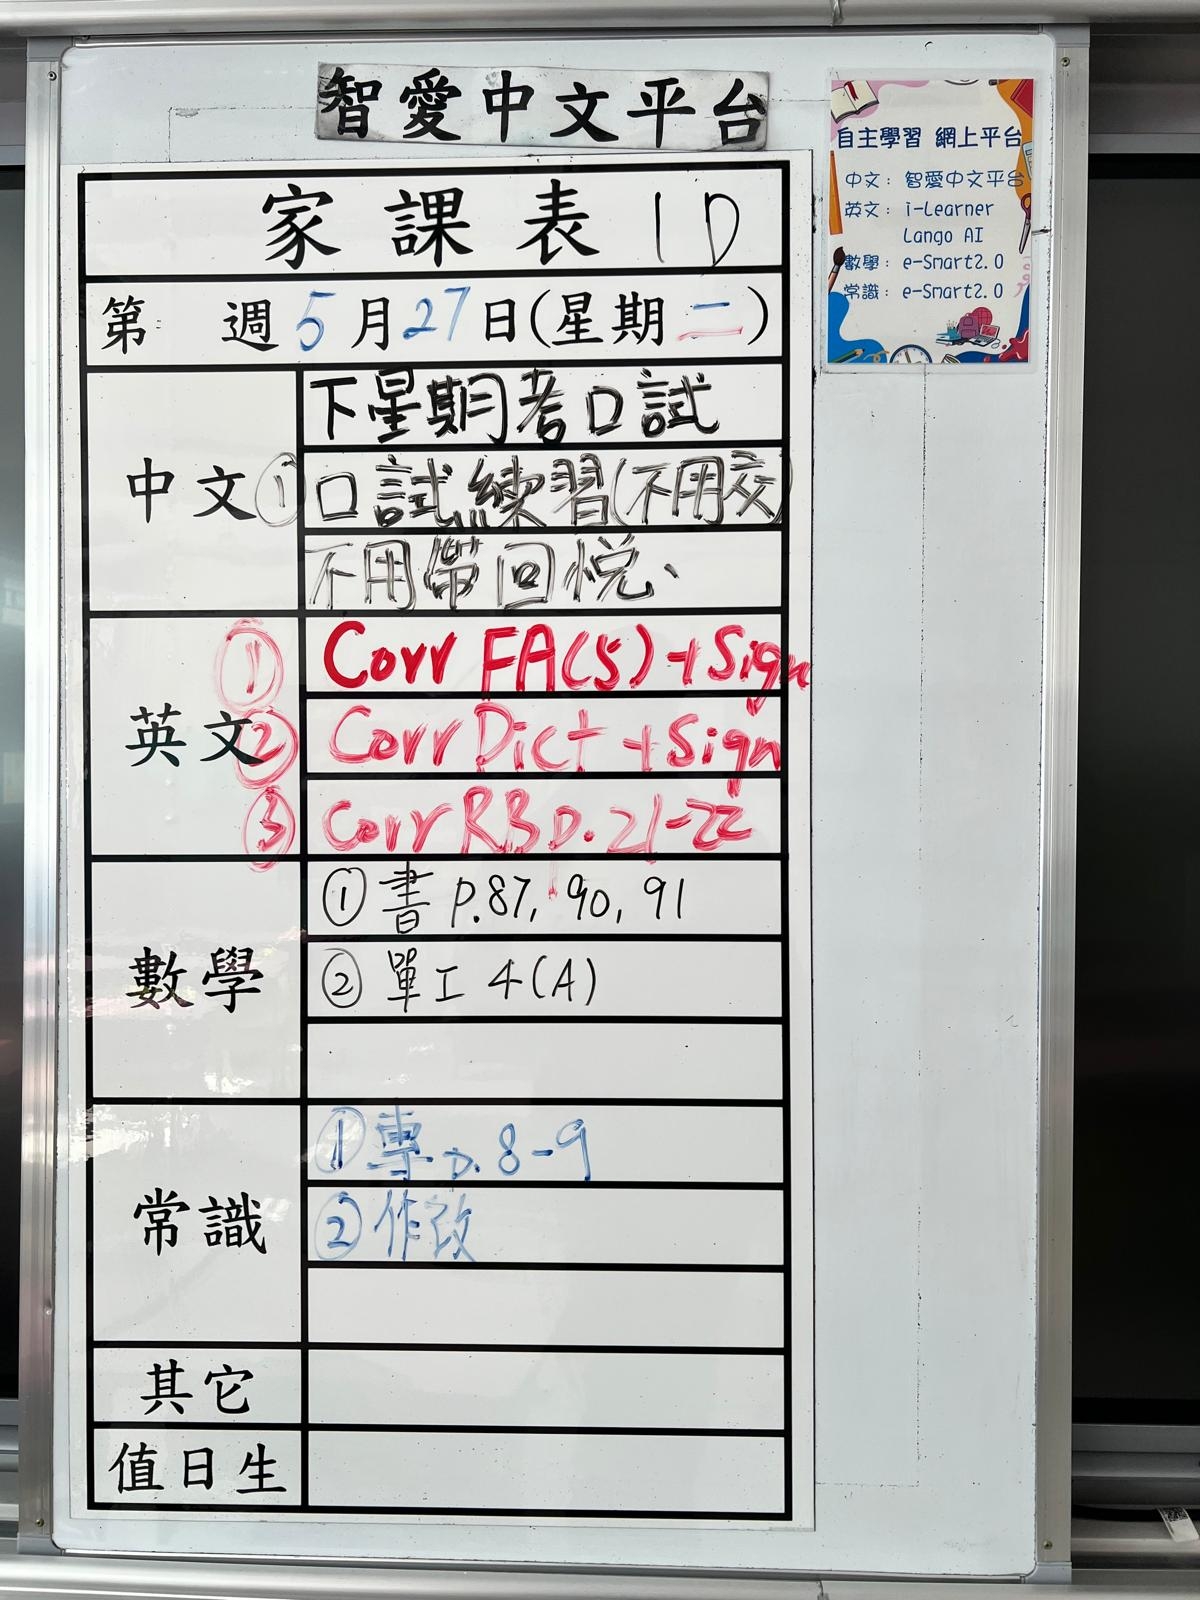 智愛中文平台
家課表 1D
第 週 5月27日(星期二)
中文
下星期考口試
① 口試練習(不用交
不用帶回悅、
英文
① Corr FA(5)+Sign
② Corr Dict +Sign
③ Corr RB p.21-22
數學
① 書 P.87, 90, 91
② 單工 4(A)
常識
① 專 p. 8-9
② 作改
其它
值日生
自主學習 網上平台
中文：智愛中文平台
英文：i-Learner
Lango AI
數學：e-Smart2.0
常識：e-Smart2.0